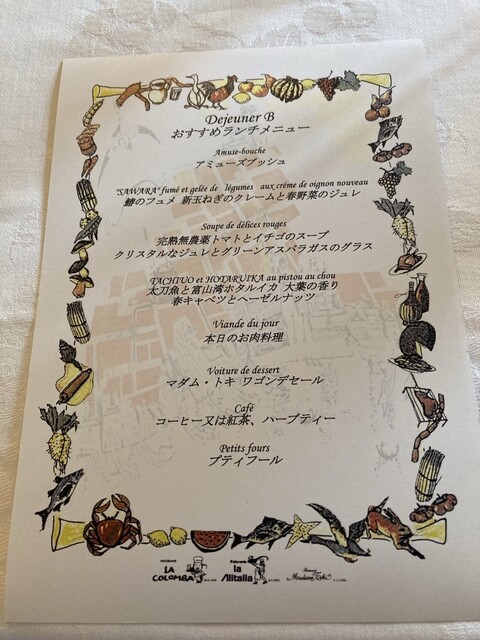 Dejeuner B
おすすめランチメニュー
Amuse-bouche
アミューズブッシュ
"SAWARA" fumé et gelée de légumes aux crème de oignon nouveau
鰆のフュメ 新玉ねぎのクレームと春野菜のジュレ
Soupe de délices rouges
完熟無農薬トマトとイチゴのスープ
クリスタルなジュレとグリーンアスパラガスのグラス
TACHIUO et HOTARUIKA au pistou au chou
太刀魚と富山湾ホタルイカ 大葉の香り
春キャベツとヘーゼルナッツ
Viande du jour
本日のお肉料理
Voiture de dessert
マダム・トキ ワゴンデセール
Café
コーヒー又は紅茶、ハーブティー
Petits fours
プティフール
LA COLOMBA
la Alitalia
Madame Toki